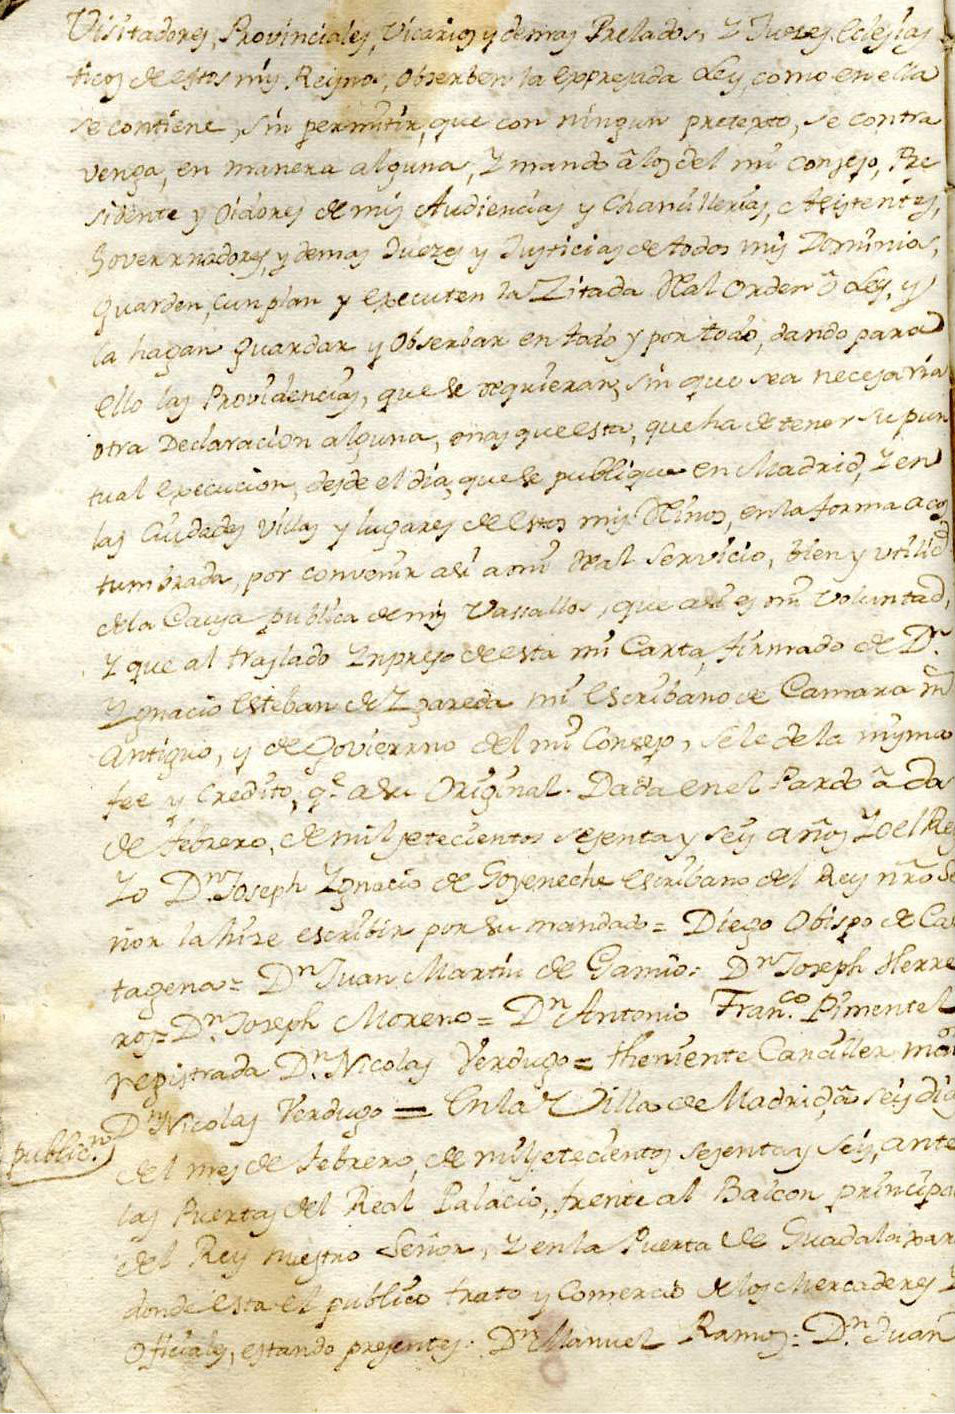 Visitadores, Provinciales, Vicarios y demas Prelados, Y Juezes Ecclesias
ticos de estos mis Reynos, Obserben la expresada Ley, como en ella
se contiene, sin permitir, que con ningun pretexto, se contra
venga, en manera alguna, Y mando â los del mi Consejo, Pre
sidente y Oidores de mis Audiencias y Chancillerias, Asistentes,
Governadores, y demas Juezes y Justicias de todos mis Dominios,
Guarden, cunplan y executen la Zitada Real Orden ô Ley, y
la hagan guardar y Obserbar en todo y por todo, dando para
ello las Providencias, que se requieran, sin que sea necesaria
otra Declaracion alguna, mas que esta, que ha de tener su pun
tual execucion, desde el dia, que se publique en Madrid, Y en
las Ciudades Villas y lugares de estos mis Reinos, en la forma acos
tumbrada, por convenir asi a mi Real Servicio, bien y utilid.d
de la Causa publica de mis Vasallos, que asi es mi Voluntad,
Y que al traslado Ynpreso de esta mi Carta, firmado de D.n
Ygnacio Esteban de Ygareda mi Escribano de Camara m
antiguo, y de Govierrno del mi Consejo, se le de la misma
fee y Credito, q.e a su Original. Dada en el Pardo â dos
de febrero, de mil setecientos sesenta y seis años Yo el Rey
Yo D.n Joseph Ygnacio de Goyeneche escribano del Rey nrõ Se
ñor la hize escribir por su mandado = Diego Obispo de Car
tagena = D.n Juan Martin de Gamio = D.n Joseph Herre
ros = D.n Joseph Moreno = D.n Antonio Fran.co Pimentel
registrada D.n Nicolas Verdugo = theniente Canciller mar
D.n Nicolas Verdugo = En la Villa de Madrid, â seis dias
public.n
del mes de febrero, de mil setecientos sesenta y seis, ante
las Puertas del Real Palacio, frente al Balcon principal
del Rey nuestro Señor, Y en la Puerta de Guadalaxara
donde esta el publico trato y Comercio de los Mercaderes Y
Oficiales, estando presentes. D.n Manuel Ramos = D.n Juan